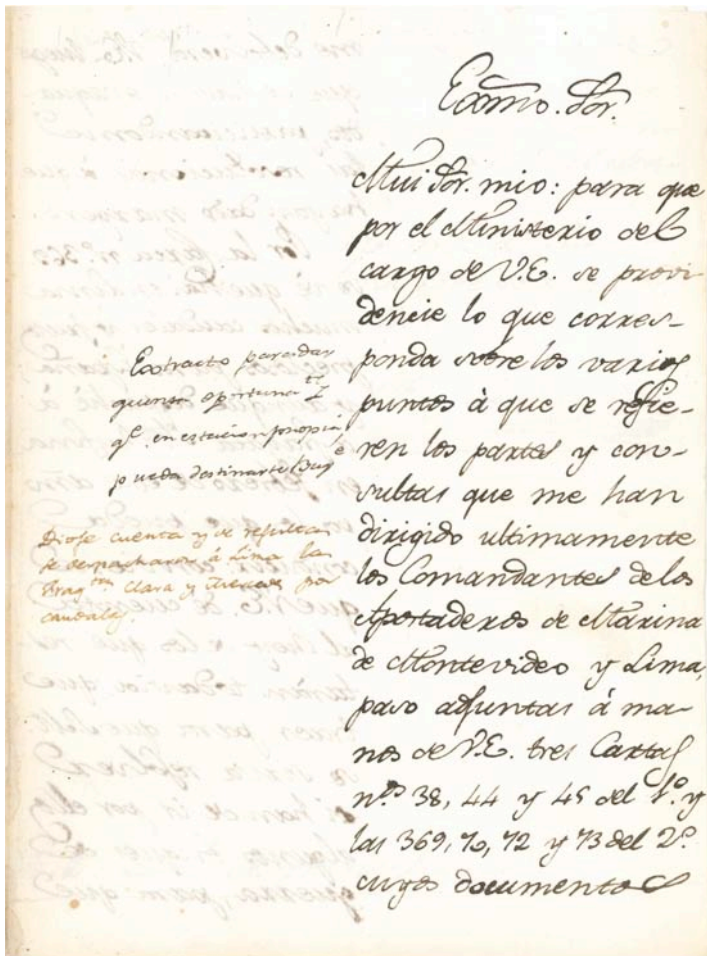 Exmo. Sor.
Mui Sor. mio: para que
por el Ministerio del
cargo de V.E. se provi
dencie lo que corres-
ponda sobre los varios
puntos à que se refie-
ren los partes y con-
sultas que me han
dirigido ultimamente
los Comandantes de los
Apostaderos de Marina
de Montevideo y Lima,
paso adjuntas à ma-
nos de V.E. tres Cartas
nos 38, 44 y 45 del 1º. y
las 369, 70, 72 y 73 del 2º.
cuyos documentos
Extracto para dar
quenta oportunamte
qe. en estacion propia
pueda destinarse
Diose cuenta y de resultas
se despacharon à Lima las
Fragtas Clara y por
caudales.